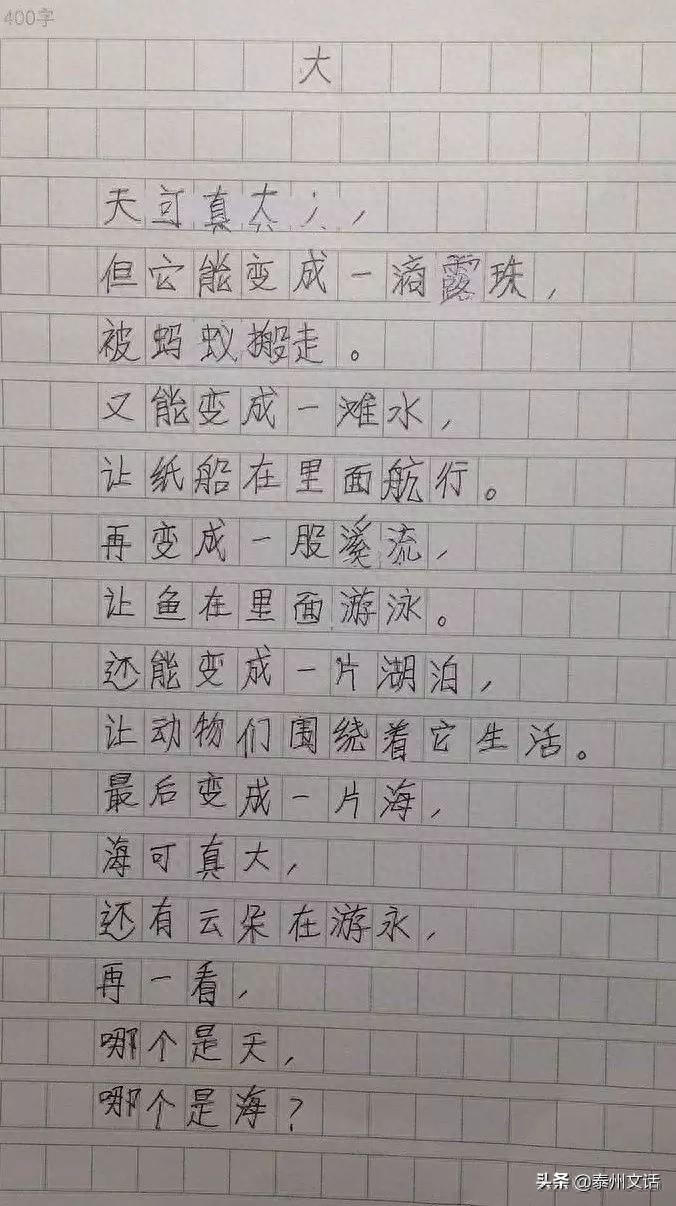 400字
大
天可真大,
但它能变成一滴露珠,
被蚂蚁搬走。
又能变成一滩水,
让纸船在里面航行。
再变成一股溪流,
让鱼在里面游泳。
还能变成一片湖泊,
让动物们围绕着它生活。
最后变成一片海,
海可真大,
还有云朵在游永,
再一看,
哪个是天,
哪个是海?
头条 @泰州文话